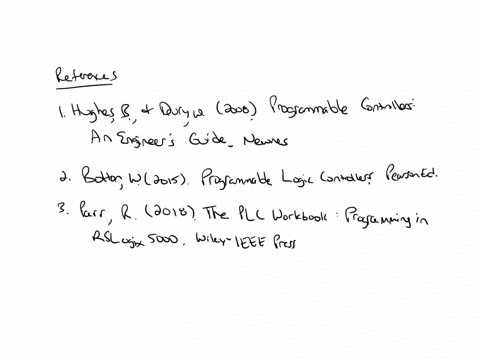 References
1. Hughes, B., & Drury, W. (2008). Programmable Controllers:
An Engineer's Guide. Newnes
2. Bolton, W. (2015). Programmable Logic Controllers. Pearson Ed.
3. Parr, R. (2018). The PLC Workbook: Programming in
RSLogix 5000. Wiley-IEEE Press